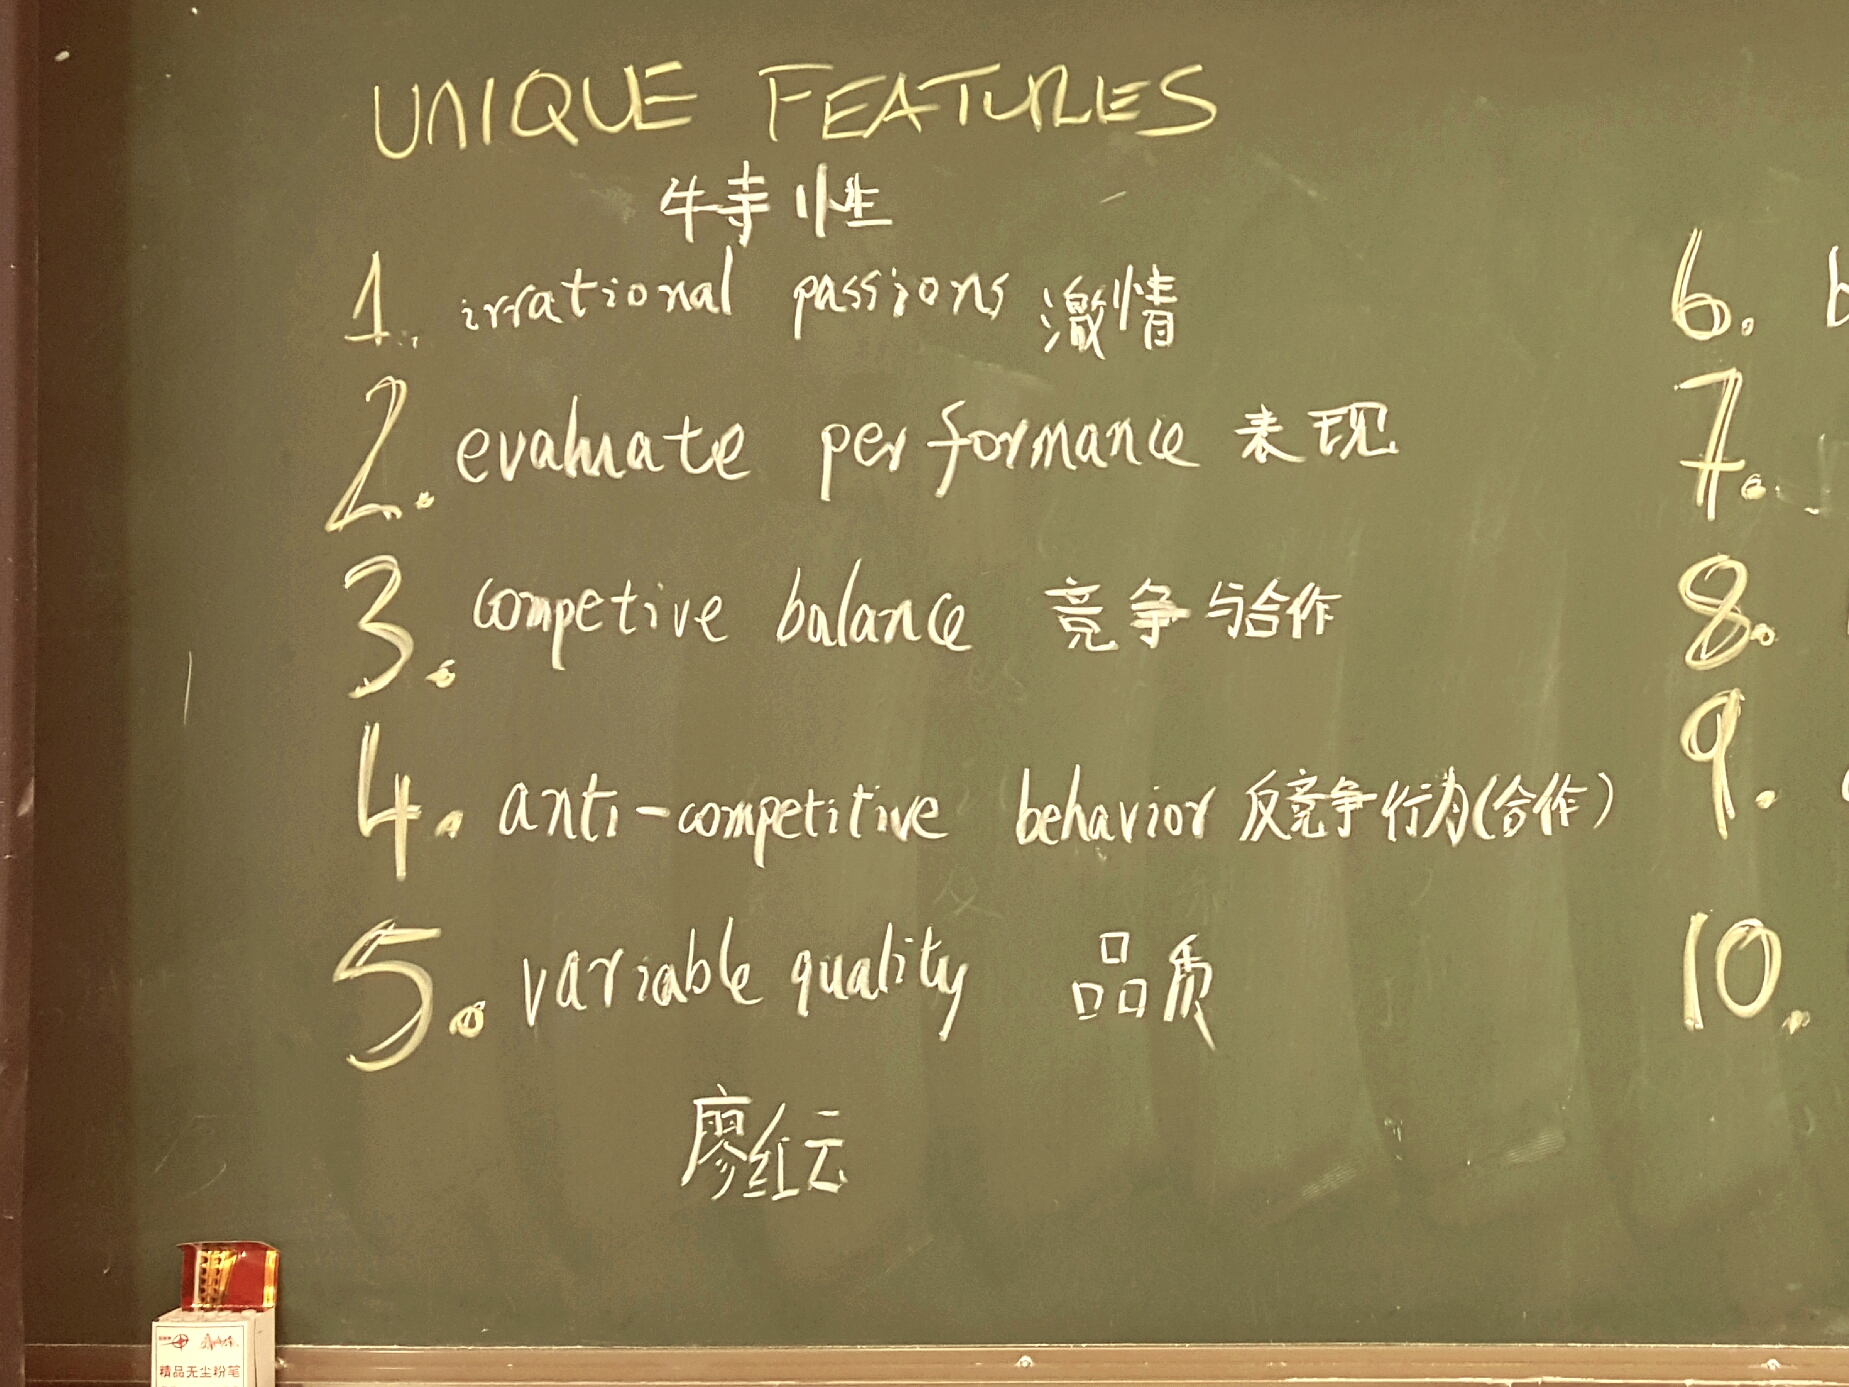 UNIQUE FEATURES
特性
1. irrational passions 激情
2. evaluate performance 表现
3. competive balance 竞争与合作
4. anti-competitive behavior 反竞争行为(合作)
5. variable quality 品质
廖红云
6. b
7.
8.
9.
10.
精品无尘粉笔